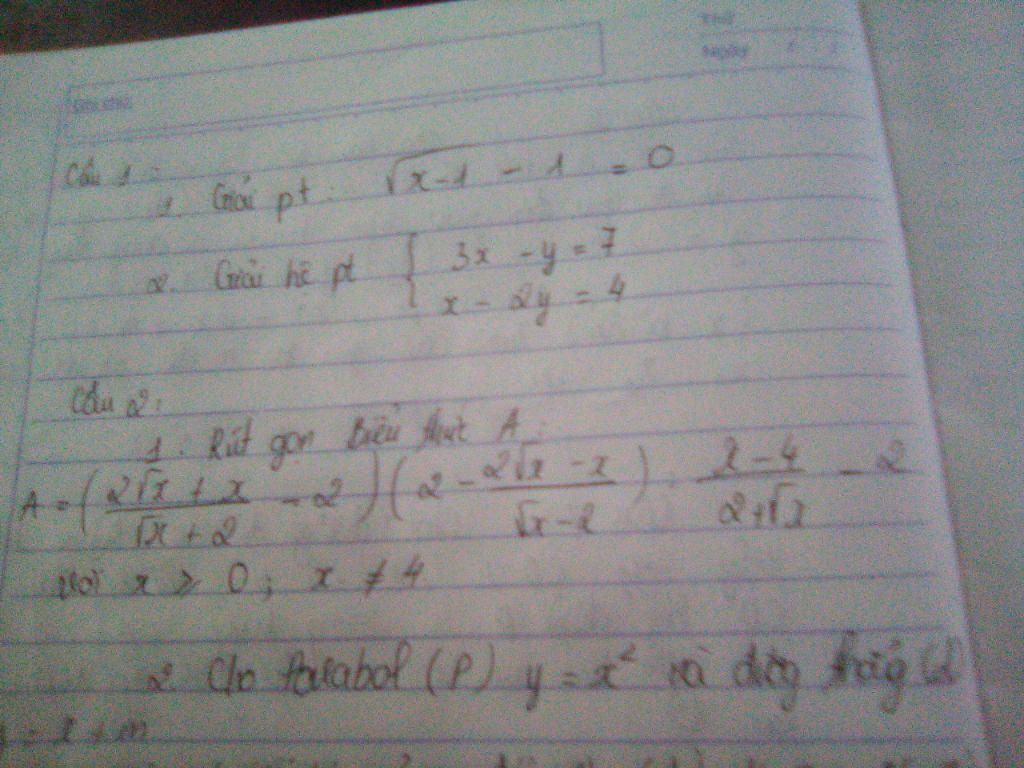 Thứ
Ngày
Câu 1:
1. Giải pt: √x-1 - 1 = 0
2. Giải hệ pt { 3x - y = 7
x - 2y = 4
Câu 2:
1. Rút gọn Biểu thức A:
A = (2√x + x / √x + 2 - 2)(2 - 2√x - x / √x - 2) : x - 4 / 2 + √x - 2
với x ≥ 0; x ≠ 4
2. Cho Parabol (P) y = x² và đường thẳng (d)
y = x + m